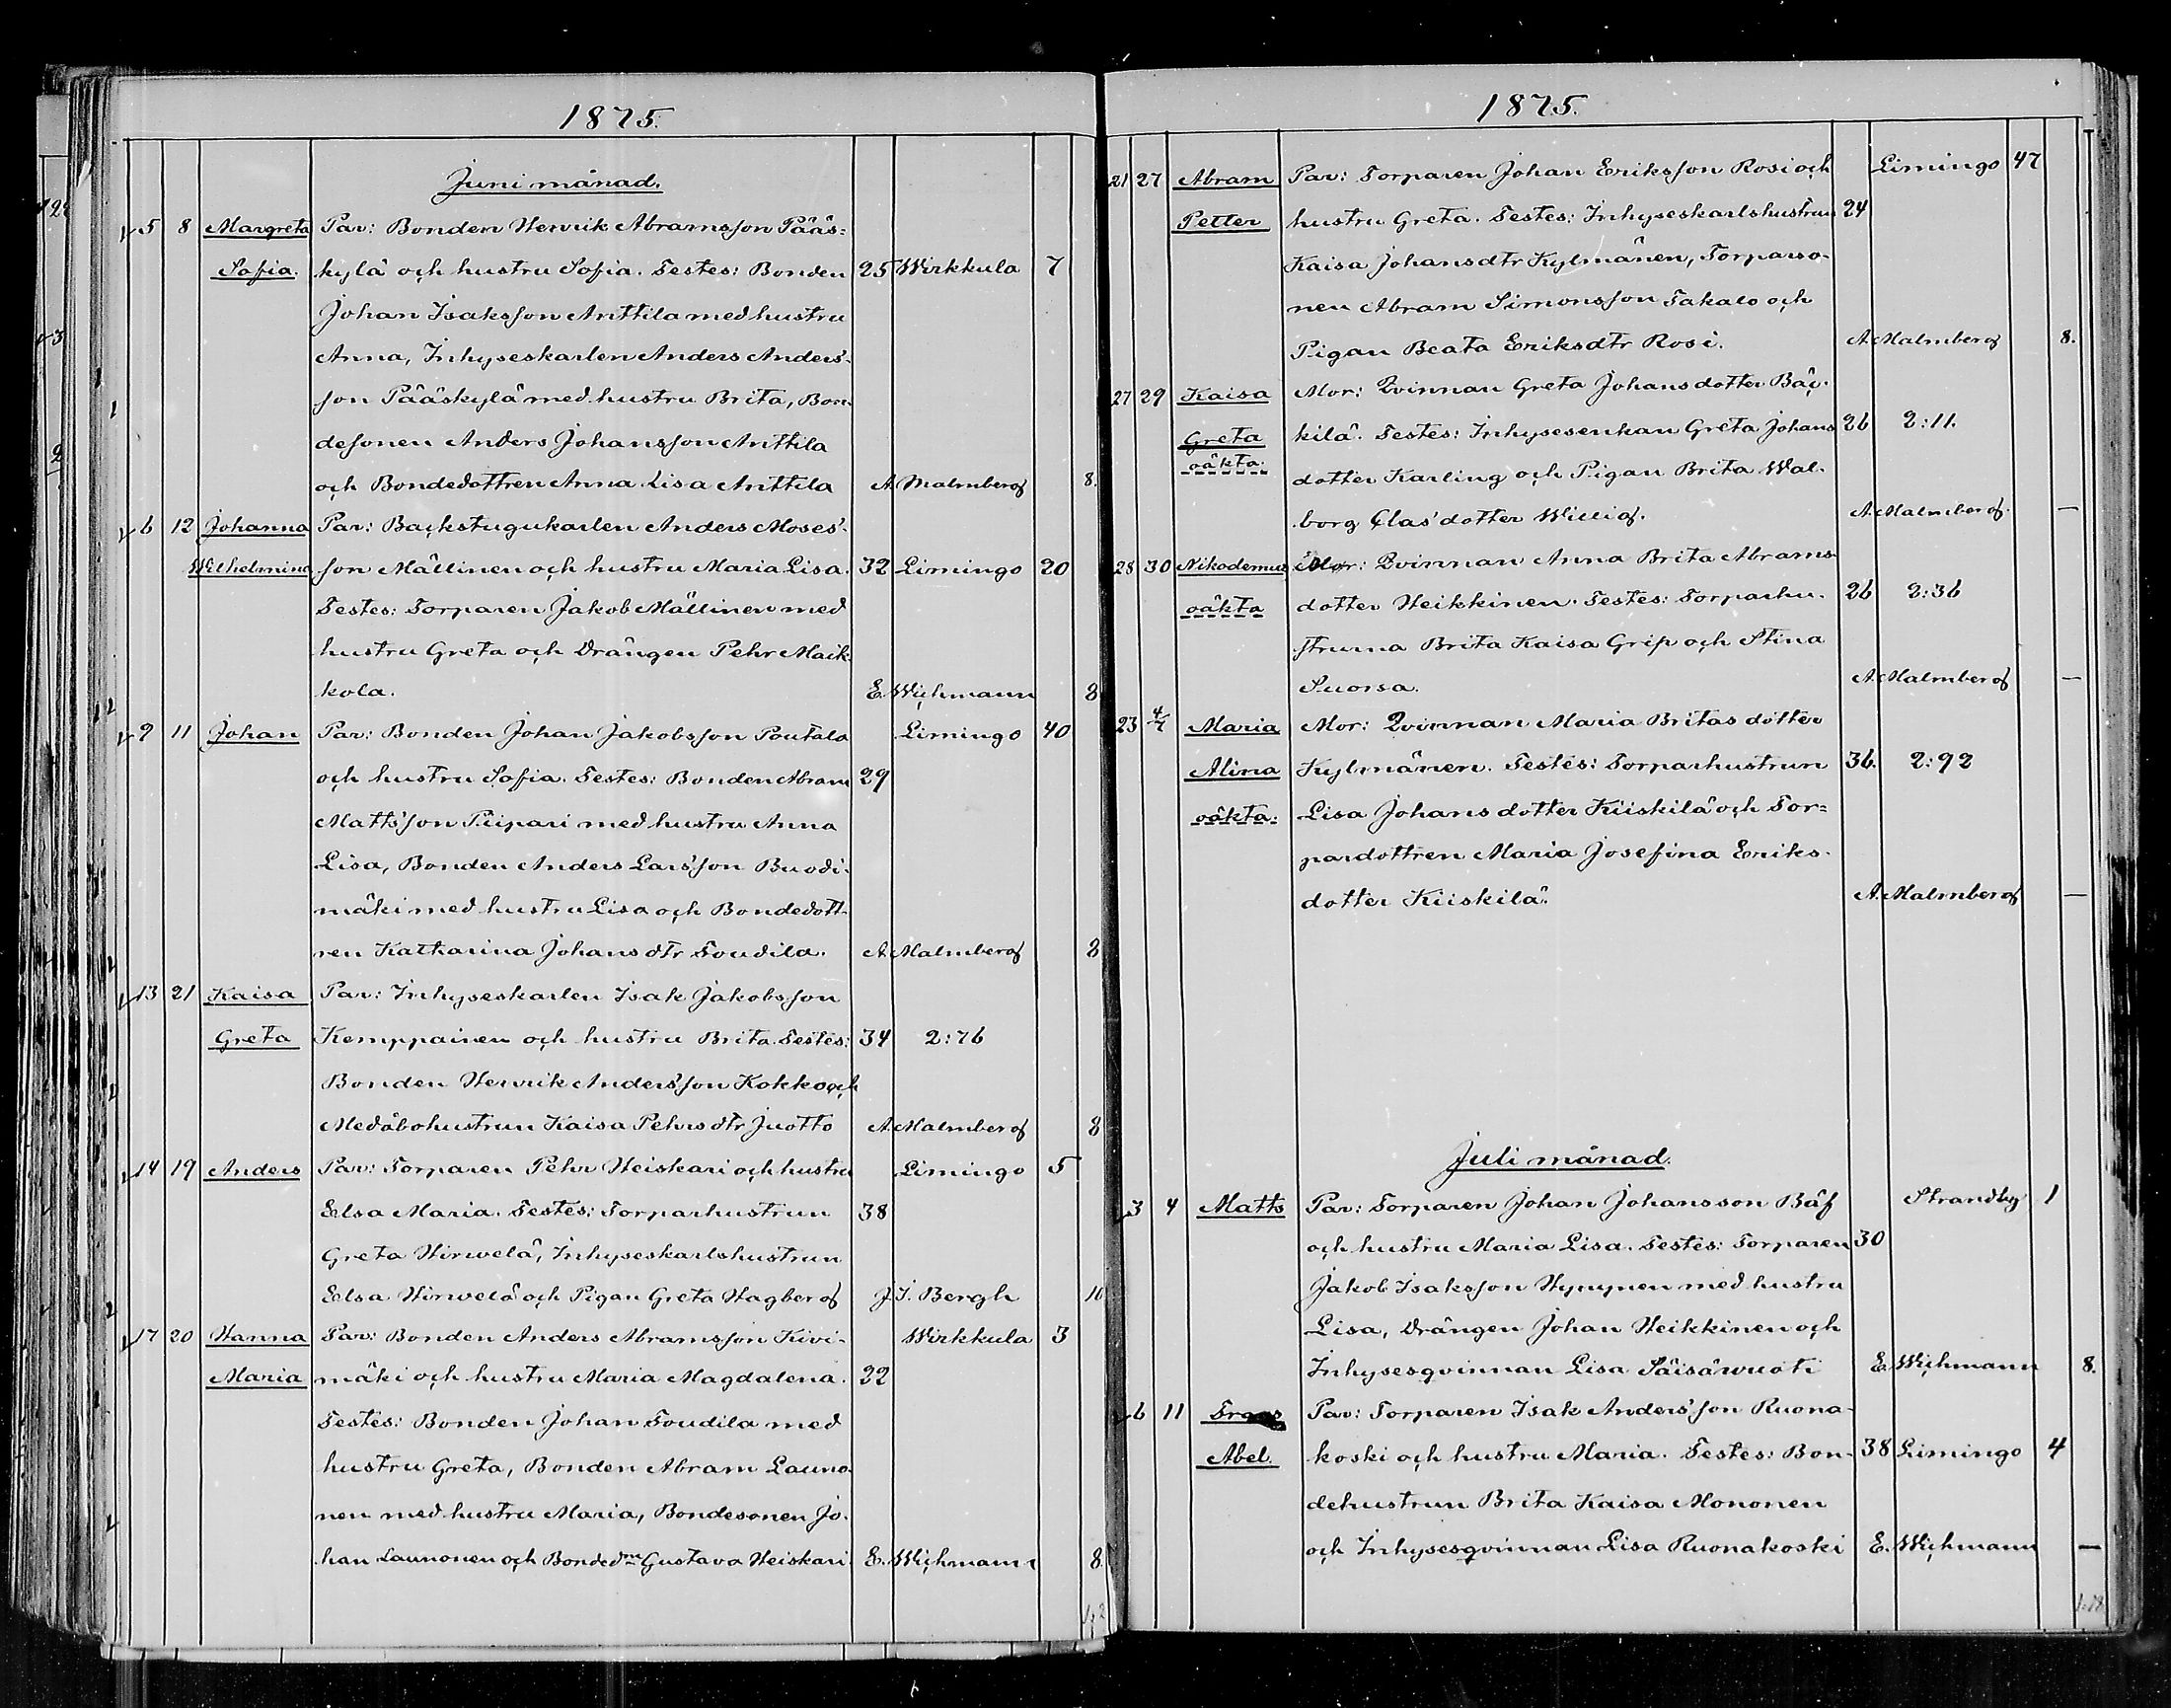 1875.
Juni månad.
5 8 Margreta Par: Bonden Henrik Abramsson Pääs=
Sofia. kylä och hustru Sofia. Testes: Bonden 25 Wirkkula 7
Johan Isaksson Anttila med hustru
Anna, Inhyseskarlen Anders Anders-
son Pääskylä med hustru Brita, Bon-
desonen Anders Johansson Anttila
och Bondedottren Anna Lisa Anttila A. Malmberg 8.
6 12 Johanna Par: Backstugukarlen Anders Moses-
Wilhelmina son Mällinen och hustru Maria Lisa. 32 Limingo 20
Testes: Torparen Jakob Mällinen med
hustru Greta och Drängen Pehr Maik-
kola. E. Wichmann 8
9 11 Johan Par: Bonden Johan Jakobsson Poutala Limingo 40
och hustru Sofia. Testes: Bonden Abram 29
Mattsson Piipari med hustru Anna
Lisa, Bonden Anders Larsson Buodi-
mäki med hustru Lisa och Bondedott-
ren Katharina Johansdtr Toudila. A. Malmberg 8
13 21 Kaisa Par: Inhyseskarlen Isak Jakobsson
Greta Kemppainen och hustru Brita. Testes: 34 2:76
Bonden Henrik Andersson Kokko och
Medåbohustrun Kaisa Pehrsdtr Juotto A. Malmberg 8
14 19 Anders Par: Torparen Pehr Heiskari och hustru Limingo 5
Elsa Maria. Testes: Torparhustrun 38
Greta Hirwelä, Inhyseskarlshustrun
Elsa Hirwelä och Pigan Greta Hagberg J. I. Bergh 10
17 20 Hanna Par: Bonden Anders Abramsson Kivi- Wirkkula 3
Maria mäki och hustru Maria Magdalena. 22
Testes: Bonden Johan Toudila med
hustru Greta, Bonden Abram Launo-
nen med hustru Maria, Bondesonen Jo-
han Launonen och Bondedrn Gustava Heiskari. E. Wichmann 8
1875.
21 27 Abram Par: Torparen Johan Eriksson Rosi och Limingo 47
Petter hustru Greta. Testes: Inhyseskarlshustrun 24
Kaisa Johansdtr Kylmänen, Torparso-
nen Abram Simonsson Takalo och
Pigan Beata Eriksdtr Rosi. A. Malmberg 8.
27 29 Kaisa Mor: Qvinnan Greta Johansdotter Bäc-
Greta kilä. Testes: Inhysesenkan Greta Johans 26 2:11.
oäkta. dotter Karling och Pigan Brita Wal-
borg Clasdotter Willig. A. Malmberg. —
28 30 Nikodemus Mor: Qvinnan Anna Brita Abrams
oäkta dotter Heikkinen. Testes: Torparhu- 26 2:36
struna Brita Kaisa Grip och Stina
Suorsa. A. Malmberg —
23 4/7 Maria Mor: Qvinnan Maria Britas dotter
Alina Kylmänen. Testes: Torparhustrun 36. 2:92
oäkta. Lisa Johansdotter Kiiskilä och Tor=
pardottren Maria Josefina Eriks-
dotter Kiiskilä. A. Malmberg —
Juli månad.
3 4 Matts Par: Torparen Johan Johansson Bäf Strandby 1
och hustru Maria Lisa. Testes: Torparen 30
Jakob Isaksson Hynynen med hustru
Lisa, Drängen Johan Heikkinen och
Inhysesqvinnan Lisa Säisäwuoti E. Wichmann 8.
6 11 Par: Torparen Isak Andersson Ruona-
Abel. koski och hustru Maria. Testes: Bon- 38 Limingo 4
dehustrun Brita Kaisa Mononen
och Inhysesqvinnan Lisa Ruonakoski E. Wichmann —